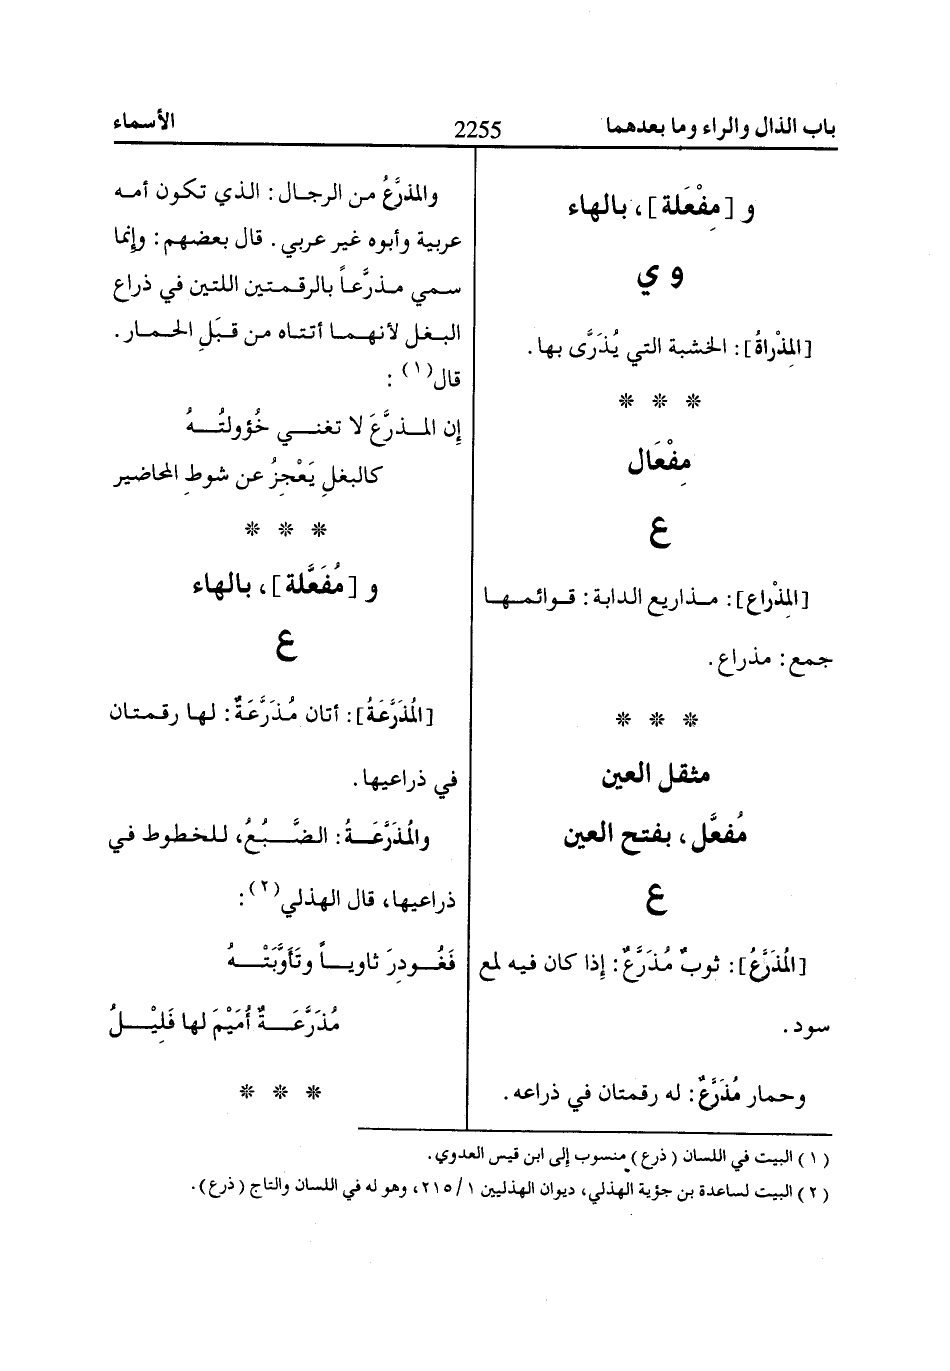 باب الذال والراء وما بعدهما
2255
الأسماء
و [مِفْعَلة]، بالهاء
و ي
[المِذْراةُ]: الخشبة التي يُذَرَّى بها.
* * *
مِفْعَال
ع
[المِذْراع]: مـذاريع الدابة: قـوائمـهـا
جمع: مذراع.
* * *
مثقل العين
مُفعَّل، بفتح العين
ع
[المُذَرَّعُ]: ثوبٌ مُذَرَّعٌ: إذا كان فيه لمع
سود.
وحمار مُذَرَّعٌ: له رقمتان في ذراعه.
والمذرَّعُ من الرجال: الذي تكون أمه
عربية وأبوه غير عربي. قال بعضهم: وإنما
سمي مـذرَّعـاً بالرقـمـتين اللتين في ذراع
البـغـل لأنهـمـا أتتـاه من قـبَلِ الحـمـار.
قال(١):
إن المـــذرَّعَ لا تغنـــي خُؤولتُـــهُ
كالبغلِ يَعْجزُ عن شوطِ المحاضير
* * *
و [مُفَعَّلة]، بالهاء
ع
[المُذَرَّعَةُ]: أتان مُذَرَّعَةٌ: لـهـا رقـمـتـان
في ذراعيها.
والمُذَرَّعَــةُ: الضَّبُعُ، للخطوط في
ذراعيها، قال الهذلي(٢):
فَغُــودِرَ ثاويــاً وتَأَوَّبَتْــهُ
مُذَرَّعَـــةٌ أُمَيْمَ لها فَلِيْـــلُ
* * *
(١) البيت في اللسان (ذرع) منسوب إلى ابن قيس العدوي.
(٢) البيت لساعدة بن جؤية الهذلي، ديوان الهذليين ١/ ٢١٥، وهو له في اللسان والتاج (ذرع).